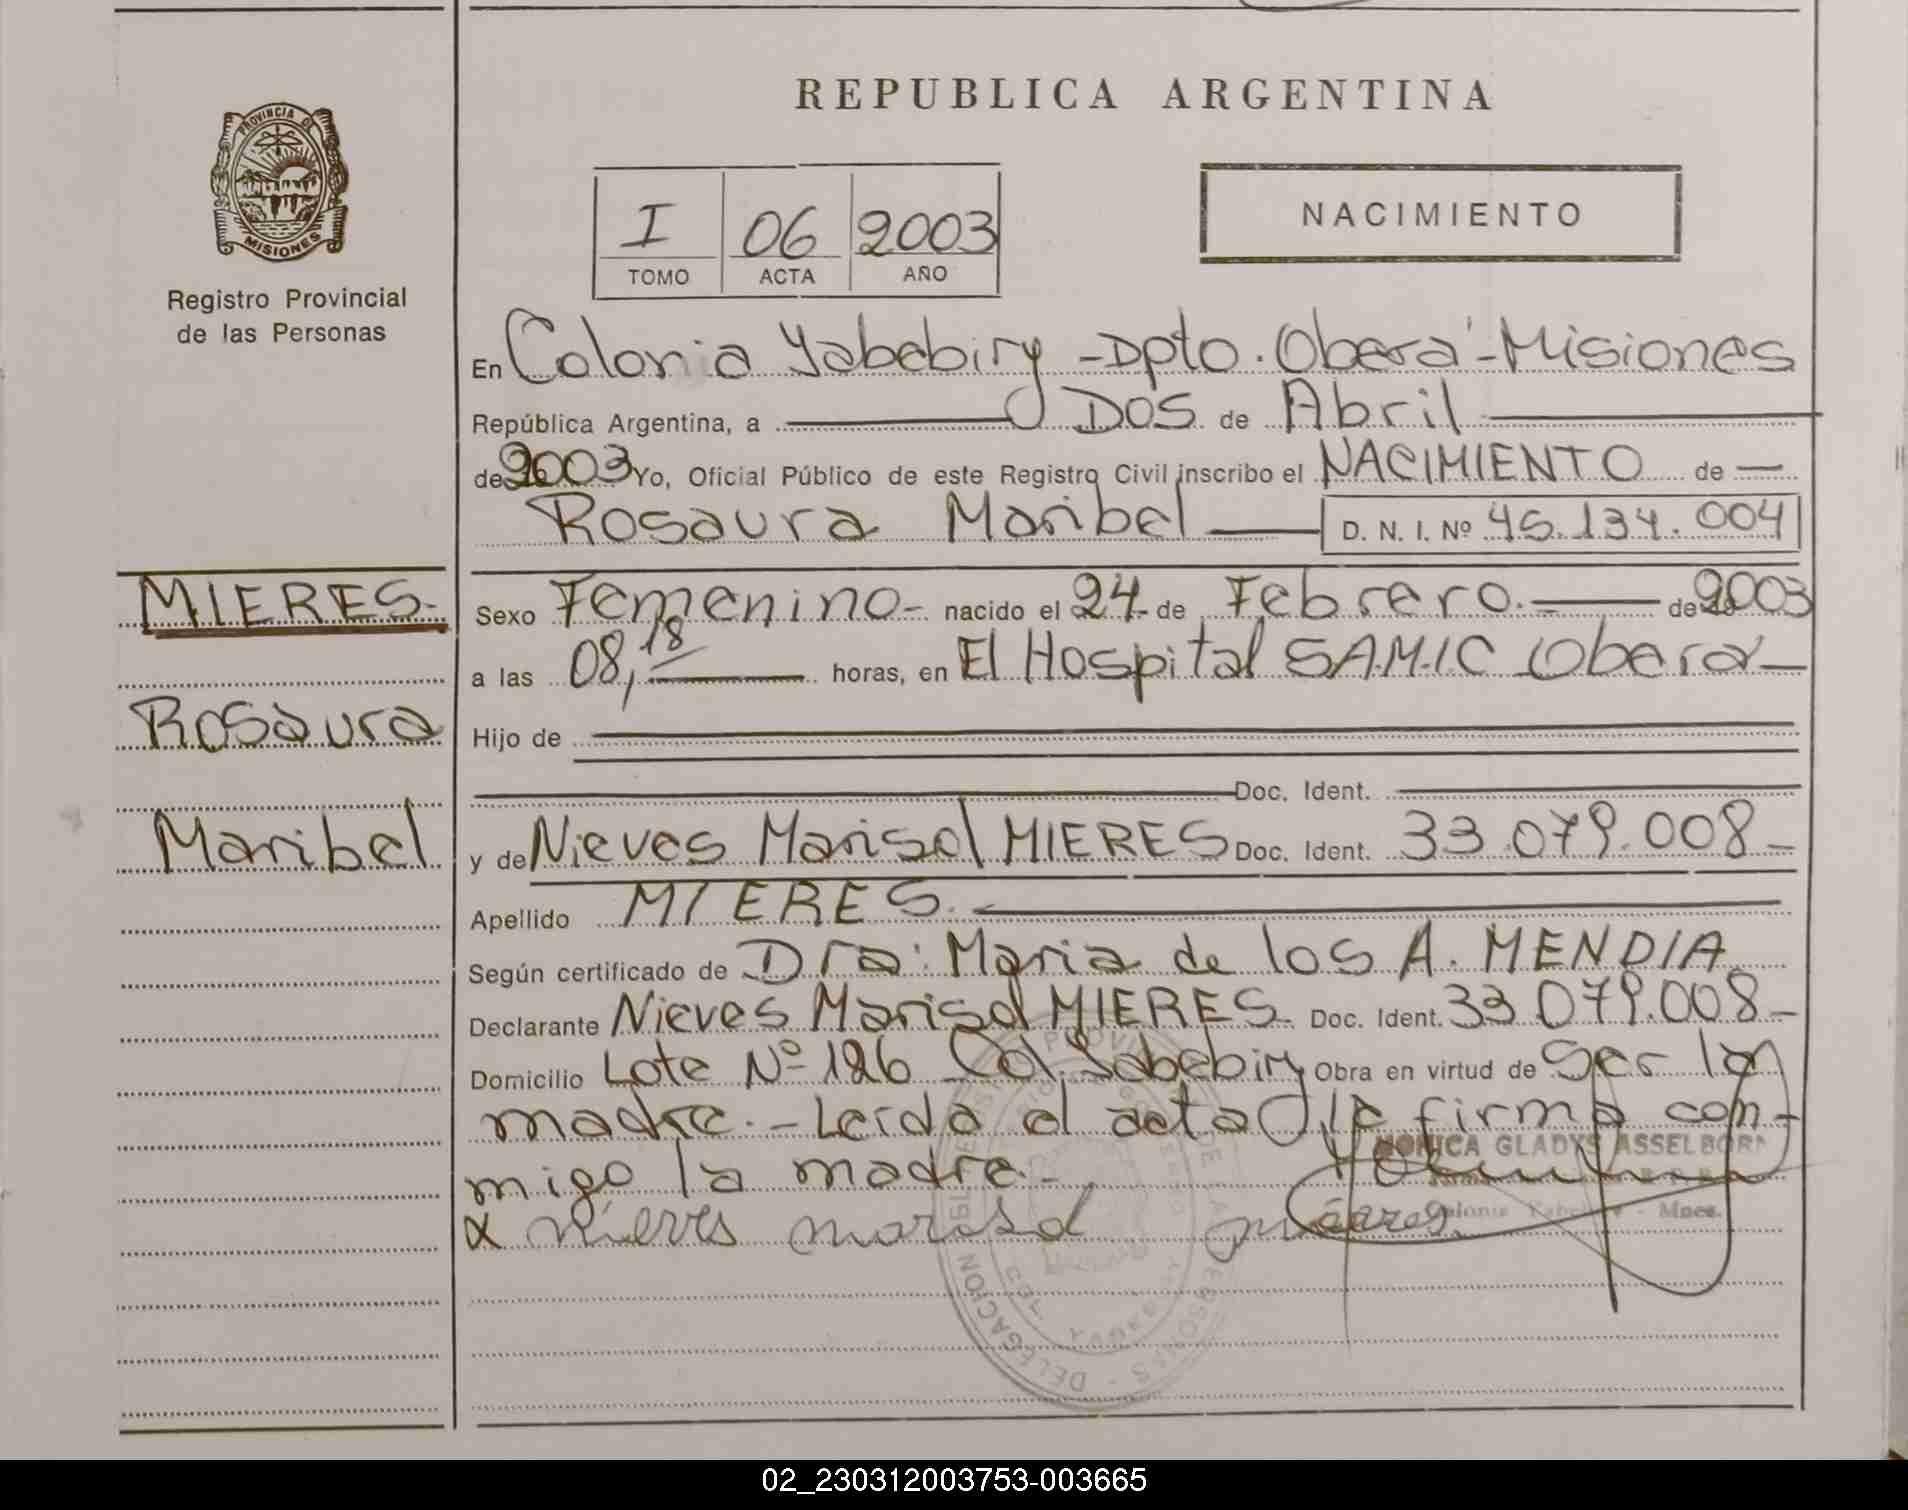 REPUBLICA ARGENTINA
PROVINCIA DE
MISIONES
Registro Provincial
de las Personas
I 06 2003
TOMO ACTA AÑO
NACIMIENTO
En Colonia Yabebiry - Dpto. Oberá - Misiones
República Argentina, a DOS de Abril
de 2003 Yo, Oficial Público de este Registro Civil inscribo el NACIMIENTO de
Rosaura Maribel D. N. I. Nº 45.134.004
MIERES.-
Rosaura
Maribel
Sexo Femenino- nacido el 24 de Febrero.- de 2003
a las 08,18 horas, en El Hospital SAMIC Oberá-
Hijo de
Doc. Ident.
y de Nieves Marisol MIERES Doc. Ident. 33.079.008-
Apellido MIERES.-
Según certificado de Dra: Maria de los A. MENDIA
Declarante Nieves Marisol MIERES. Doc. Ident. 33.079.008-
Domicilio Lote Nº 126 Col. Yabebiry Obra en virtud de Ser la
madre.- Leida el acta, la firma con-
migo la madre.-
MONICA GLADYS ASSELBORN
x nieves marisol mieres
Colonia - Mnes.
DELEGACION
02_230312003753-003665